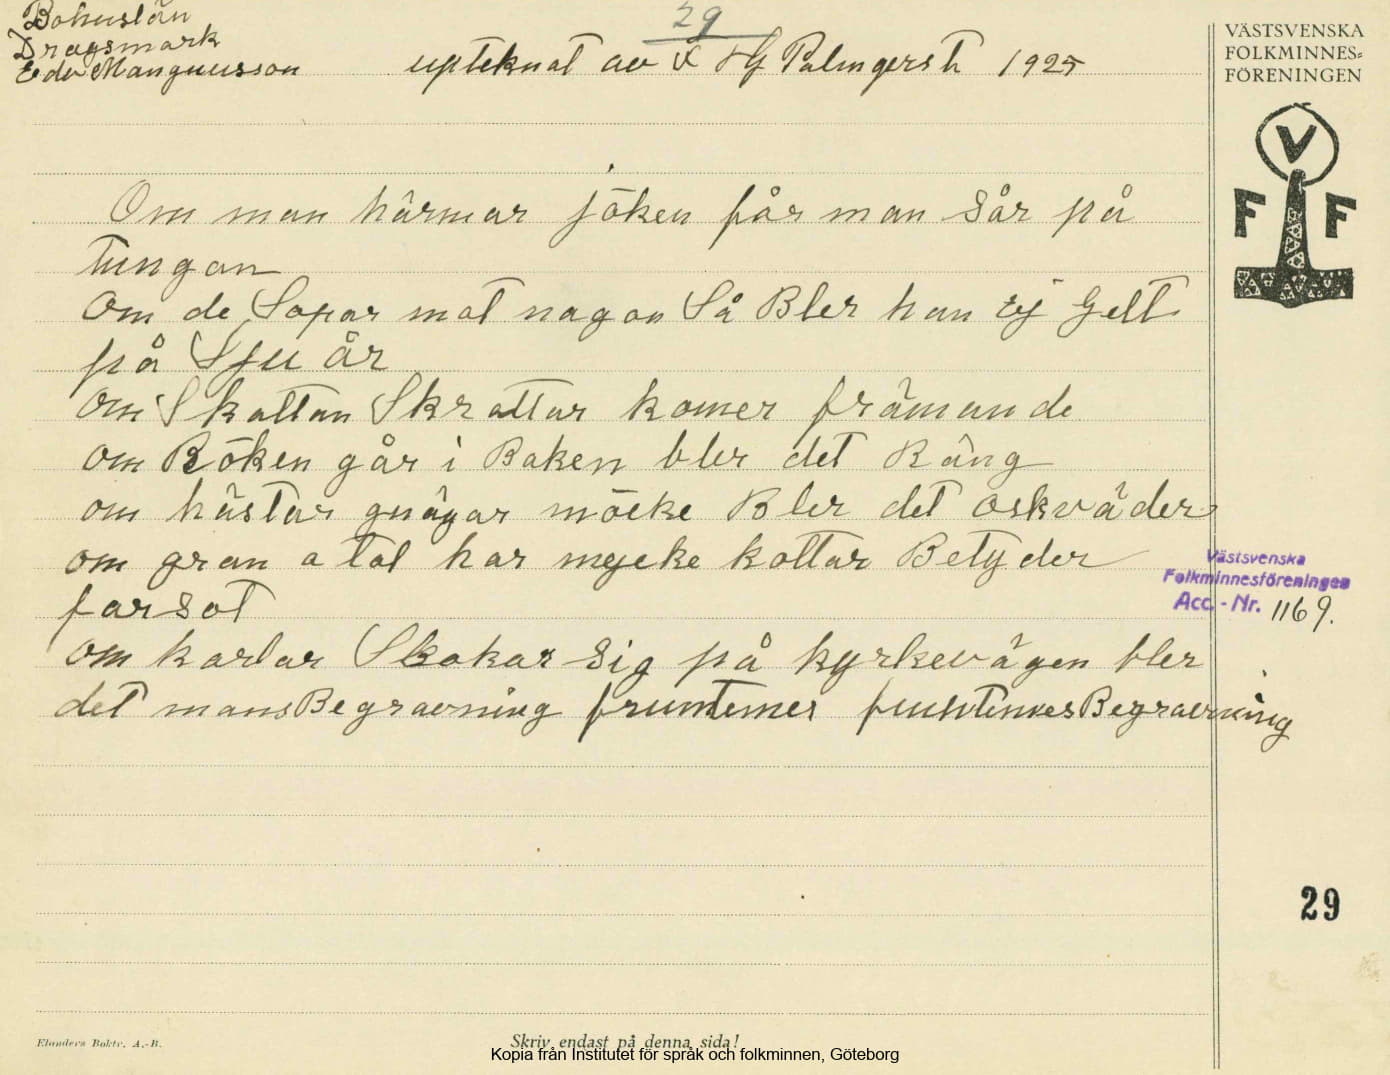 Bohuslän
Dragsmark
Edv Mangnusson
29
upteknat av
Palmqersh 1925
VÄSTSVENSKA
FOLKMINNES=
FÖRENINGEN
V
F F
Om man härmar jöken får man sår på
tungan
om de Sopar mot nagon Så Bler han ej Gelt
på Sju år
om Skattan Skrattar komer främande
om Röken går i Baken bler det Räng
om hästar gnägar möcke Bler det oskväder
om gran a tal har mycke kottar Betyder
farsot
om karlar Skokar sig på kyrkevägen bler
det mansBegravning fruntemer fruntimesBegravning
Västsvenska
Folkminnesföreningen
Acc. - Nr. 1169.
29
Elanders Boktr. A.-B.
Skriv endast på denna sida!
Kopia från Institutet för språk och folkminnen, Göteborg